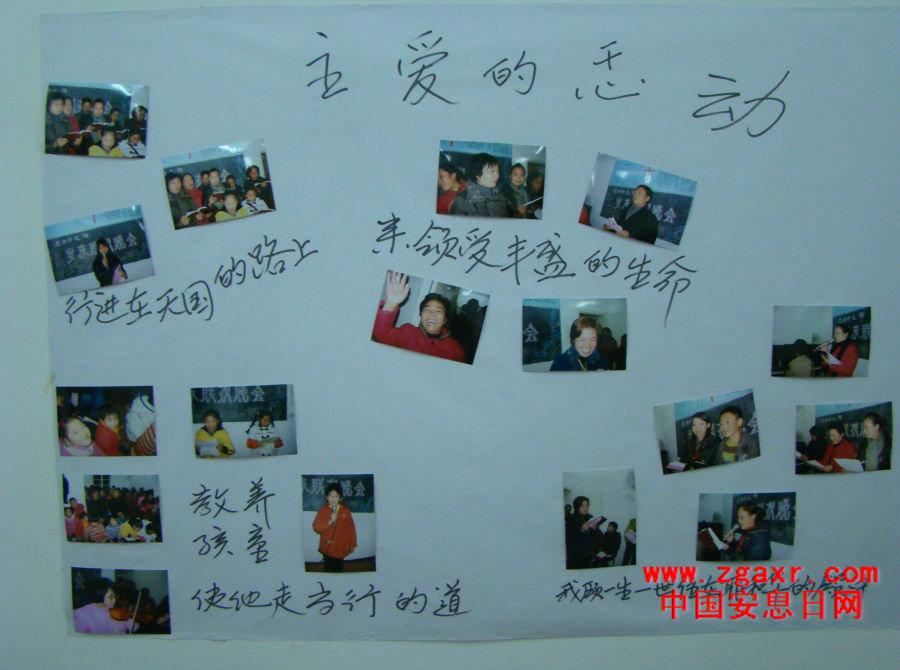 主爱的动
行进在天国的路上
来领受丰盛的生命
教养
孩童
使他走当行的道
我愿一生一世住在
联欢晚会
晚会
www.zgaxr.com
中国安息日网